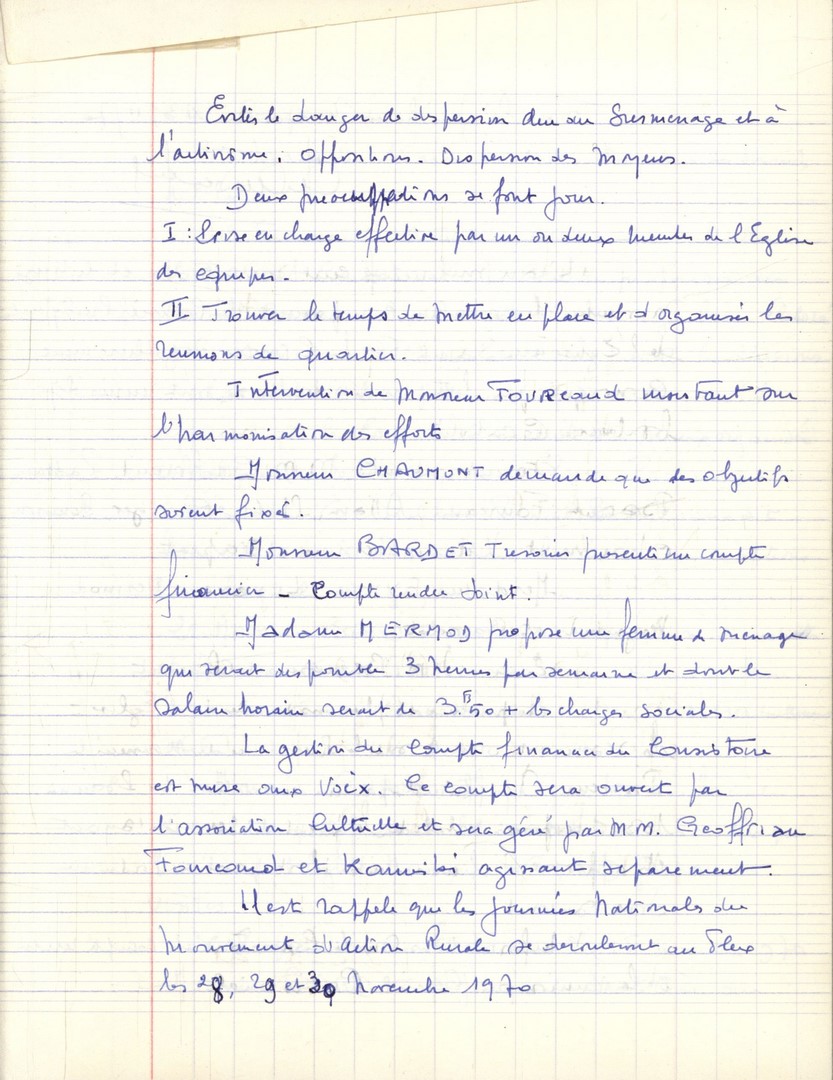 Eviter le danger de dispersion due au Surmenage et à
l'activisme. Oppositions. Dispersion des Moyens.
Deux preoccupations se font jour.
I : Prise en charge effective par un ou deux membres de l'Eglise
des equipes.
II Trouver le temps de mettre en place et d'organiser les
reunions de quartier.
Intervention de Monsieur FOURCAUD insistant sur
l'harmonisation des efforts
Monsieur CHAUMONT demande que des objectifs
soient fixés.
Monsieur BARDET Tresorier presente un compte
financier - Compte rendu Joint.
Madame MERMOD propose une femme de menage
qui serait disponible 3 heures par semaine et dont le
salaire horaire serait de 3.F50 + les charges sociales.
La gestion du Compte financier du Consistoire
est mise aux Voix. Ce compte sera ouvert par
l'association Cultuelle et sera géré par M M. Geoffriau
Fourcaud et Kaminski agissant separement.
Il est rappelé que les Journées Nationales du
Mouvement d'Action Rurale se derouleront au
les 28, 29 et 30 Novembre 1970